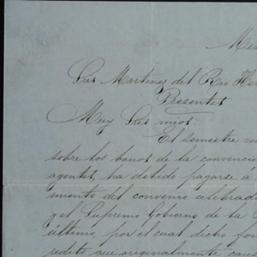 Mex
Sres Martinez del Rio He
Presentes
Muy Sres mios.
El semestre
sobre los bonos de la convencion
agentes, ha debido pagarse á
mento del convenio celebrad
y el Supremo Gobierno de la
último por el cual dicho fon
que originalmente